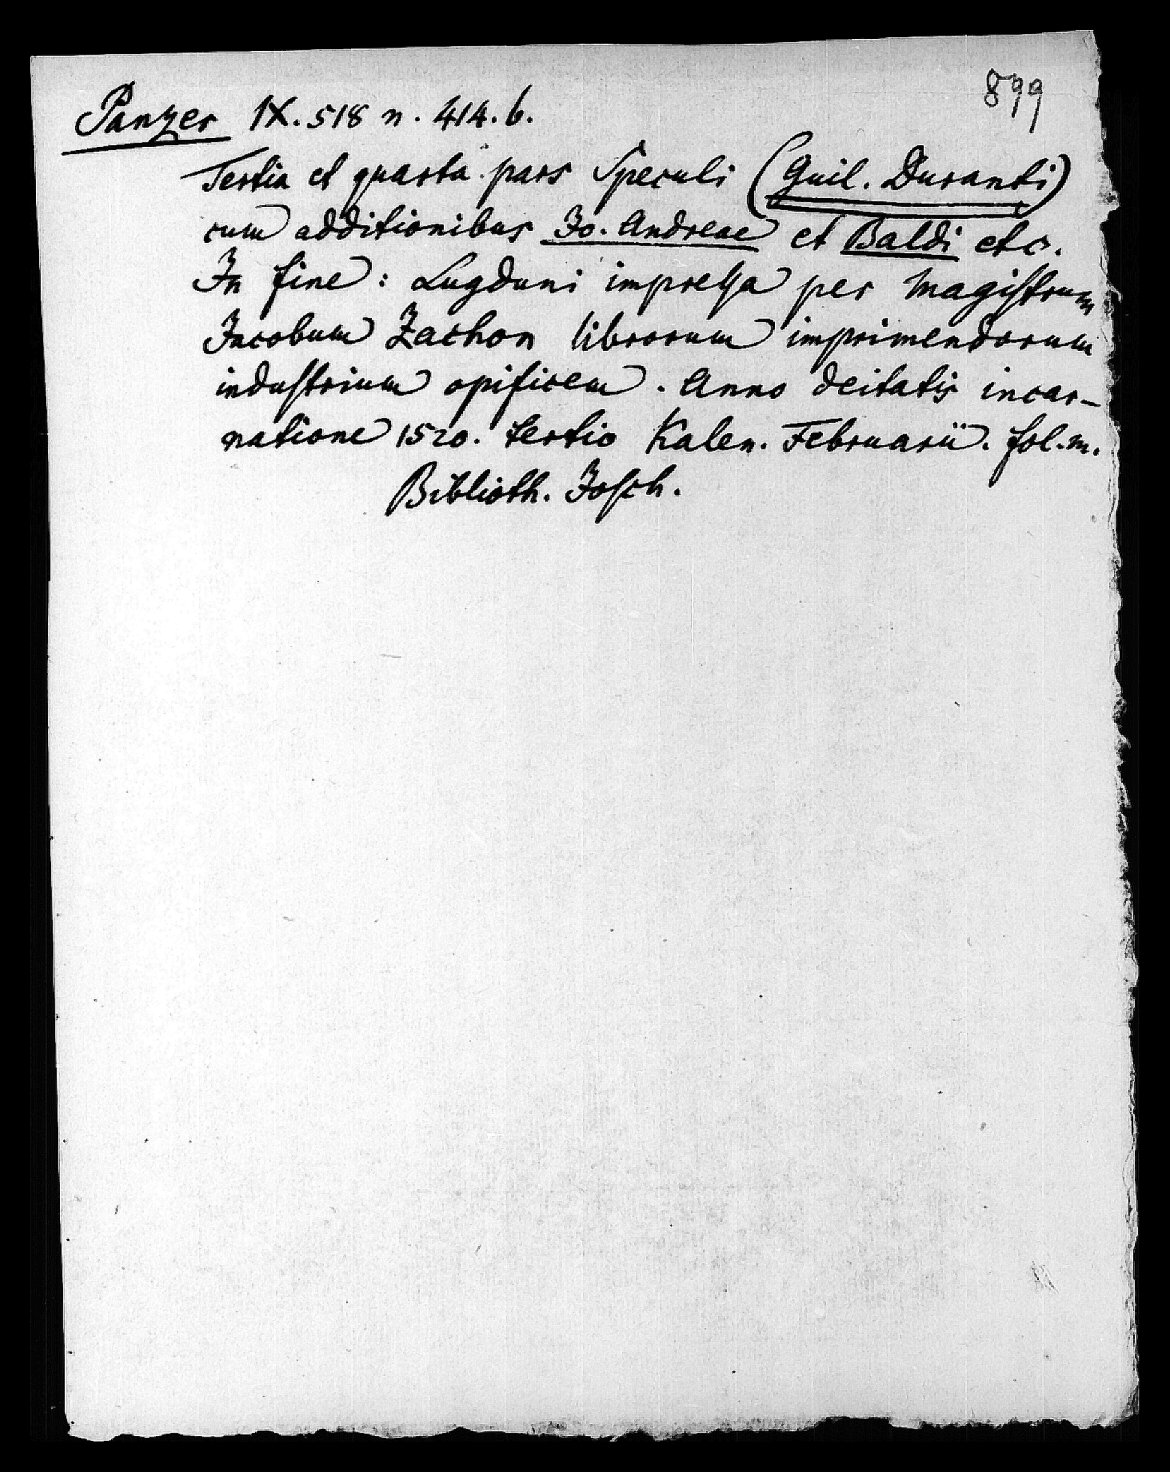 899
Panzer IX. 518 n. 414. b.
Tertia et quarta pars Speculi (Guil. Duranti)
cum additionibus Jo. Andreae et Baldi etc.
In fine: Lugduni impreſsa per Magiſtrum
Jacobum Zachon librorum imprimendorum
induſtrium opificem. Anno deitatis incar-
natione 1520. tertio Kalen. Februarii. fol. m.
Biblioth. Joſch.